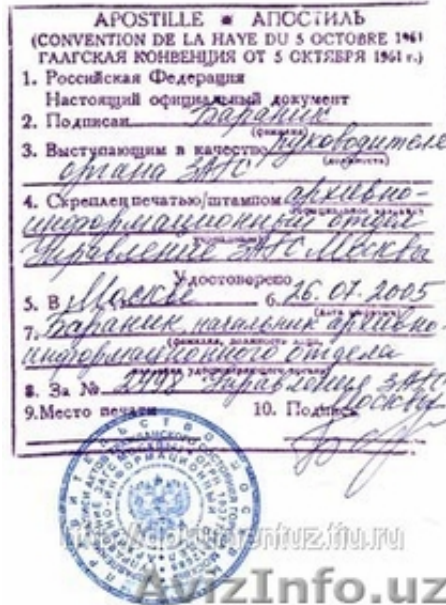 APOSTILLE ▪ АПОСТИЛЬ
(CONVENTION DE LA HAYE DU 5 OCTOBRE 1961
ГААГСКАЯ КОНВЕНЦИЯ ОТ 5 ОКТЯБРЯ 1961 г.)
1. Российская Федерация
Настоящий официальный документ
2. Подписан Бараник
(фамилия)
3. Выступающим в качестве руководителя
(должность)
органа ЗАГС
4. Скреплен печатью/штампом архивно-
информационный отдел
Управление ЗАГС Москвы
Удостоверено
5. В Москве 6. 26.07.2005
(дата цифрами)
7. Бараник, начальник архивно-
(фамилия, должность лица,
информационного отдела
удостоверяющего органа)
8. За № 2498 Управления ЗАГС
Москвы
9. Место печати 10. Подпись
ПРАВИТЕЛЬСТВО МОСКВЫ
tiu.ru
AvizInfo.uz